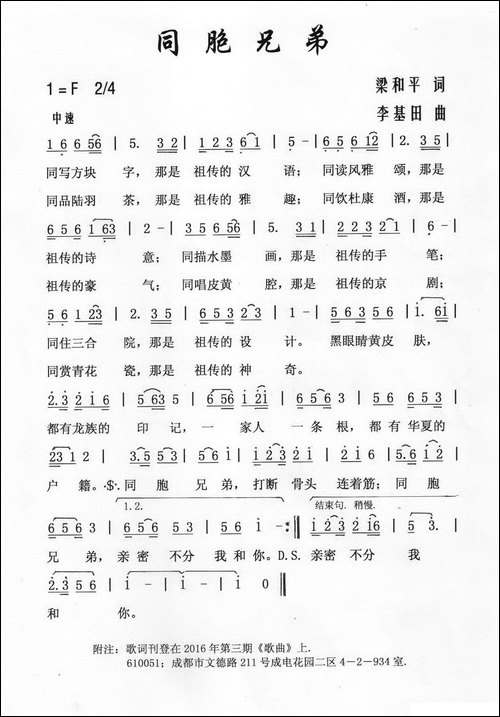 同胞兄弟
1=F 2/4
梁和平 词
中速
李基田 曲
1 6 6 5 6 | 5. 3 2 | 1 2 3 6 1 | 5 - | 6 5 6 1 2 | 2. 3 5 |
同写方块 字，那是 祖传的 汉 语；同读风雅 颂，那是
同品陆羽 茶，那是 祖传的 雅 趣；同饮杜康 酒，那是
6 5 6 1 6 3 | 2 - | 3 5 6 5 6 | 5. 3 1 | 2 2 3 2 1 | 6 - |
祖传的诗 意；同描水墨 画，那是 祖传的手 笔；
祖传的豪 气；同唱皮黄 腔，那是 祖传的京 剧；
5 6 1 2 3 | 2. 3 5 | 6 5 6 3 2 | 1 - | 5 6 3 5 6 | 1. 6 1 |
同住三合 院，那是 祖传的 设 计。黑眼睛黄皮 肤，
同赏青花 瓷，那是 祖传的 神 奇。
2. 3 2 1 6 | 5 6 3 5 | 6 5 6 1 | 6 5 3 2 | 5 6 | 6 5 3 |
都有龙族的 印 记，一 家人 一 条 根，都 有 华夏的
2 3 1 2 | 3. 5 5 3 | 5. 6 5 | 1 2 3 2 | 1 2 1 6 | 5 1 |
户 籍。𝄋同 胞 兄 弟，打断 骨头 连着筋；同 胞
1. 2.
结束句. 稍慢.
6 5 6 3 | 6 5 6 5 3 | 5 6 1 | 1 - :‖ 1 2 3 2 1 6 | 5 3. |
兄 弟，亲密 不分 我 和 你。D.S. 亲密 不分 我
2. 3 5 6 | 1 - | 1 - | 1 0 ‖
和 你。
附注：歌词刊登在 2016 年第三期《歌曲》上.
610051；成都市文德路 211 号成电花园二区 4－2－934 室.